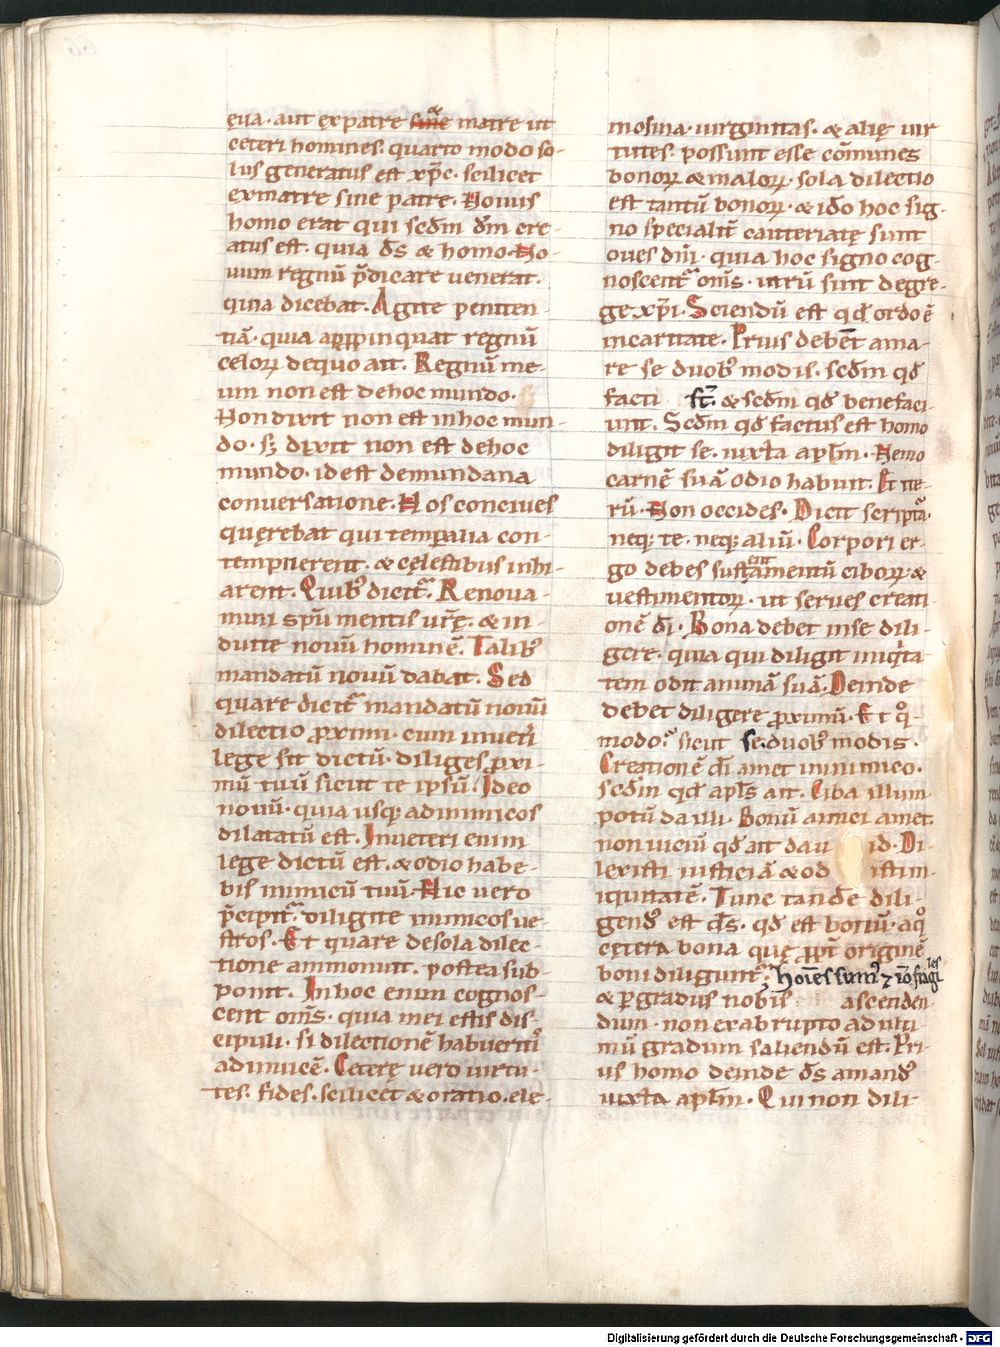 ęua · aut ex patre sine & matre ut
ceteri homines. quarto modo so-
lus generatus est xp̄c. scilicet
ex matre sine patre. Nouus
homo erat qui scd̄m dm̄ cre-
atus est. quia ds̄ & homo. No-
uum regnū p̄dicare uenerat.
quia dicebat. Agite peniten-
tiā. quia appropinquat regnū
celoꝝ de quo ait. Regnū me-
um non est de hoc mundo.
Non dixit non est in hoc mun-
do. sꝫ dixit non est de hoc
mundo. id est de mundana
conuersatione. Nos conciues
quęrebat qui temꝑalia con-
tempnerent. & cęlestibus inhi-
arent. Quibꝰ dicit᷑. Renoua-
mini spū mentis ur̄ę. & in-
duite nouū hominē. Talibꝰ
mandatū nouū dabat. Sed
quare dicit᷑ mandatū nouū
dilectio ꝓximi. cum in ueti
lege sit dictū. diliges ꝓxi-
mū tuū sicut te ipsū. Ideo
nouū. quia usqꝫ ad inimicos
dilatatū est. In ueteri enim
lege dictū est. & odio habe-
bis inimicū tuū. Hic uero
p̄cipit᷑. diligite inimicos ue-
stros. Et quare de sola dilec-
tione ammonuit. postea sub-
ponit. In hoc enim cognos-
cent om̄s. quia mei estis dis-
cipuli. si dilectionē habueritꝭ
ad inuicē. Ceterę uero uirtu-
tes. fides. scilicet & oratio. ele-
mosina. uirginitas. & alię uir-
tutes. possunt esse cōmunes
bonoꝝ & maloꝝ. sola dilectio
est tantū bonoꝝ. & id̄o hoc sig-
no specialit̄ cauteriatę sunt
oues dn̄i. quia hoc signo cog-
noscent᷑ om̄s. utrū sint de gre-
ge xp̄i. Sciendū est qd̄ ordo ē
in caritate. Prius debent ama-
re se duobꝰ modis. scd̄m qd̄
facti st̄. & scd̄m qd̄ benefaci-
unt. Scd̄m qd̄ factus est homo
diligit se. iuxta apl̄m. Nemo
carnē suā odio habuit. Et ite-
rū. Non occides. Dicit scriptu᷑a.
neqꝫ te. neqꝫ aliū. Corpori er-
go debes sustentamentū ciboꝝ. &
uestimentoꝝ. ut serues creati-
onē dī. Bona debet in se dili-
gere. quia qui diligit iniqͥta-
tem odit animā suā. Deinde
debet diligere ꝓximū. Et qͦ-
modo. sicut se. duobꝰ modis.
Creationē dī amet in inimico.
scd̄m qd̄ apl̄s ait. Ciba illum
potū da illi. Bonū amici amet.
non uiciū qd̄ ait dauid. Di-
lexisti iusticiā & odisti in-
iquitatē. Tunc tandē dili-
gendꝰ est ds̄. qd̄ est bonū. a qͦ
cętera bona quę ꝓpt̄ originē
boni diligunt᷑. hoīes sumꝰ ⁊ iō fragiles
& ꝑ gradus nobis ascenden-
dum. non ex abrupto ad ulti-
mū gradum saliendū est. Pri-
us homo deinde ds̄ amandꝰ
iuxta apl̄m. Qui non dili-
Digitalisierung gefördert durch die Deutsche Forschungsgemeinschaft - DFG